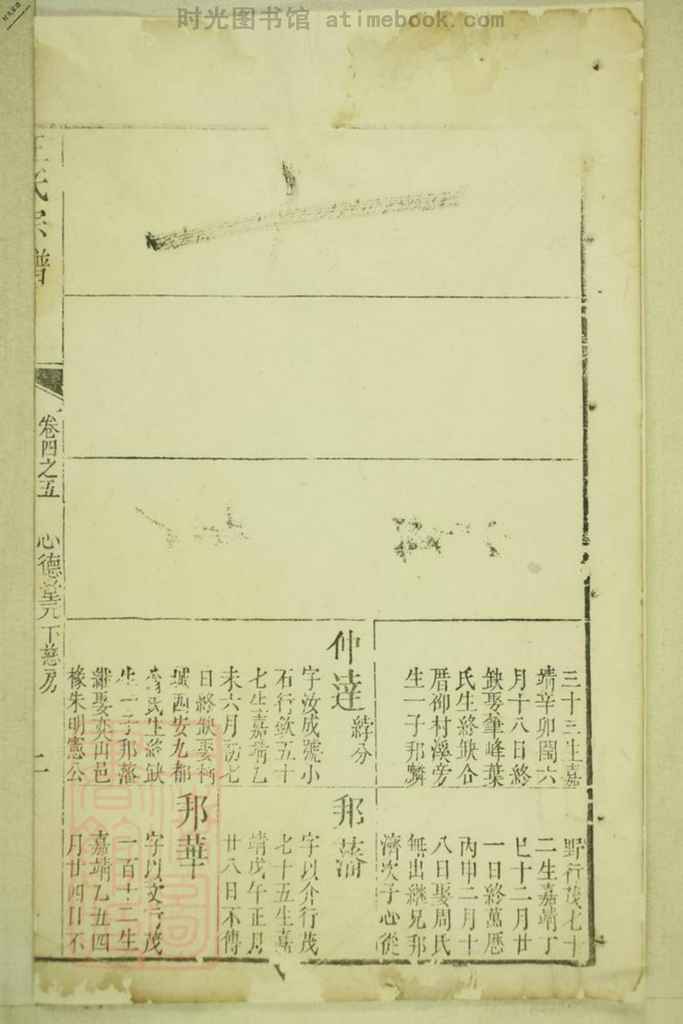 时光图书馆 atimebook.com
三十三生嘉
靖辛卯閏六
月十八日終
缺娶筆峰葉
氏生終缺合
厝柳村溪旁
生一子邦麟
仲達 綍分
字汝成號小
石行欽五十
七生嘉靖乙
未六月初七
日終缺娶
城西安九都
氏生終缺
生一子邦藩
繼娶奕山邑
椽朱明憲公
野行茂七十
二生嘉靖丁
巳十二月廿
一日終萬歷
丙申二月十
八日娶周氏
無出繼兄邦
濟次子心從
邦藩
字以介行茂
七十五生嘉
靖戊午正月
廿八日不傳
邦華
字以文行茂
一百十二生
嘉靖乙丑四
月廿四日不
王氏宗譜
卷四之五
心德堂元下慈房
二